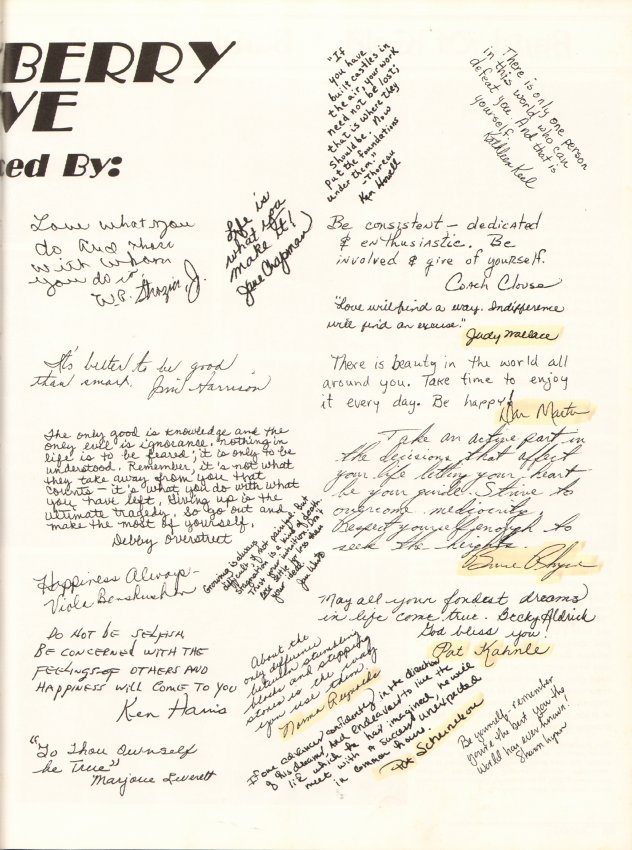 BERRY
VE
ed By:
"If
you have
built castles in
the air, your work
need not be lost;
that is where they
should be. Now
put the foundations
under them."
-Thoreau
Ken Howell
There is only one person
in this world who can
defeat you And that is
yourself.
Kathleen Keel
Love what you
do and those
with whom
you do it,
W.B.
Life is
what you
make it!
Jane Chapman
Be consistent – dedicated
& enthusiastic. Be
involved & give of yourself.
Coach Clouse
"Love will find a way. Indifference
will find an excuse."
Judy Wallace
It's better to be good
than smart. Jim Harrison
There is beauty in the world all
around you. Take time to enjoy
it every day. Be happy!
Dar Martin
The only good is knowledge and the
only evil is ignorance. nothing in
life is to be feared; it is only to be
understood. Remember, it's not what
they take away from you that
counts – it's what you do with what
you have left. Giving up is the
ultimate tragedy. So go out and
make the most of yourself.
Debby Overstreet
Take an active part in
the decisions that affect
your life letting your heart
be your guide. Strive to
overcome mediocrity.
Respect yourself enough to
seek the heights.
Growing is always
difficult if not painful. But
stagnation is a kind of death.
Trust your intuition and
never settle for less than
your
Jim White
Happiness Always–
Viola Benshushan
May all your fondest dreams
in life come true. Becky Aldrick
God bless you!
Pat Kahnle
Do not be selfish
Be concerned with the
feelings of others and
happiness will come to you
Ken Harris
About the
only difference
between stumbling
blocks and stepping
stones is the way
you use them
Norma Reynolds
If one advances confidently in the direction
of his dreams, and endeavors to live the
life which he has imagined, he will
meet with a success unexpected
in common hours.
Pat
Be yourself- remember
you're the best you the
world has ever known.
Shawn Lynn
"To Thou Ownself
be True"
Marjorie Leverett